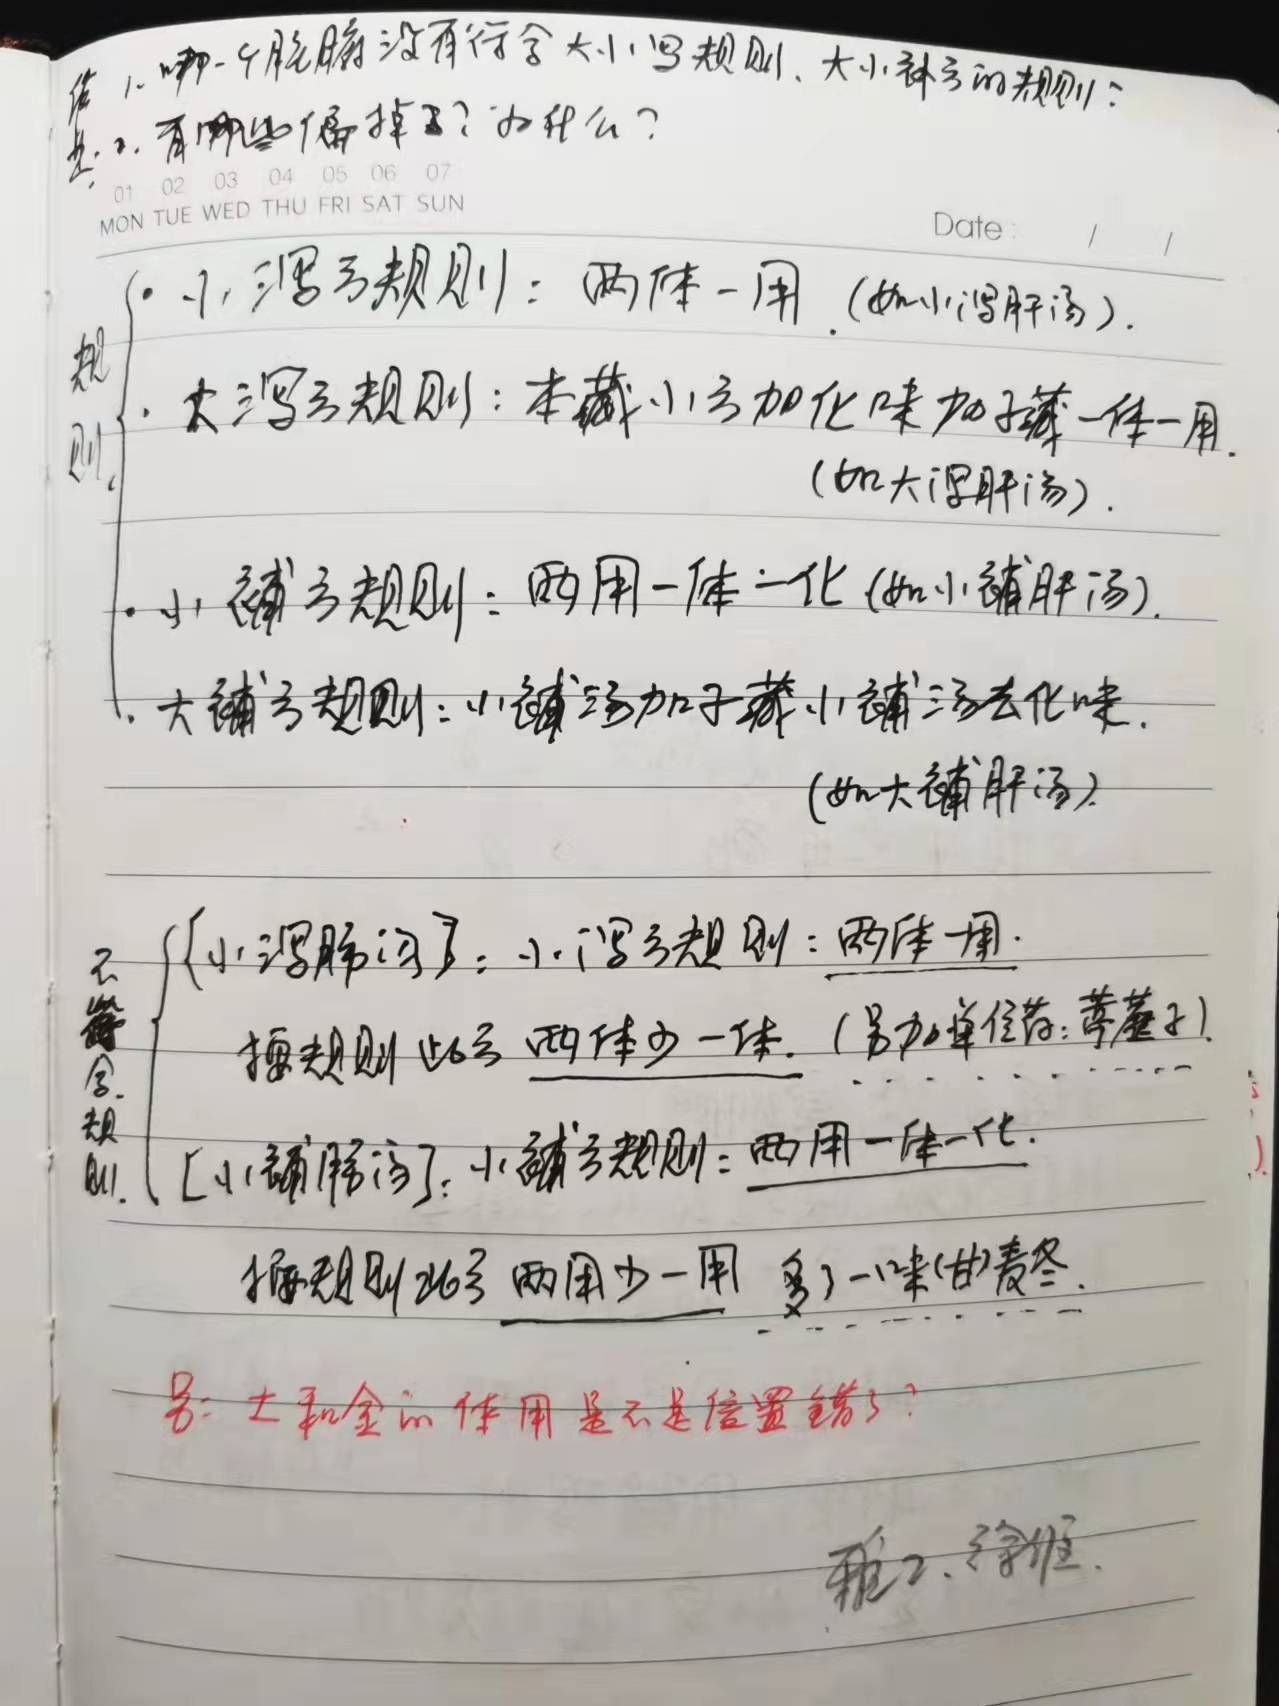 作业: 1. 哪一个脏腑没有符合大小泻规则、大小补方的规则?
2. 有哪些偏掉了? 为什么?
01 02 03 04 05 06 07
MON TUE WED THU FRI SAT SUN
Date: / /
规则
· 小泻方规则: 两体一用.(如小泻肝汤).
· 大泻方规则: 本藏小方加化味加子藏一体一用.
(如大泻肝汤).
· 小補方规则: 两用一体一化(如小補肝汤).
· 大補方规则: 小補汤加子藏小補汤去化味.
(如大補肝汤).
不符合规则.
[小泻肺汤]: 小泻方规则: 两体一用.
按规则此方 两体少一体. (另加单位药: 葶苈子).
[小補肺汤]: 小補方规则: 两用一体一化.
按规则此方 两用少一用 多了一味(甘)麦冬.
另: 土和金的体用是不是位置错了?